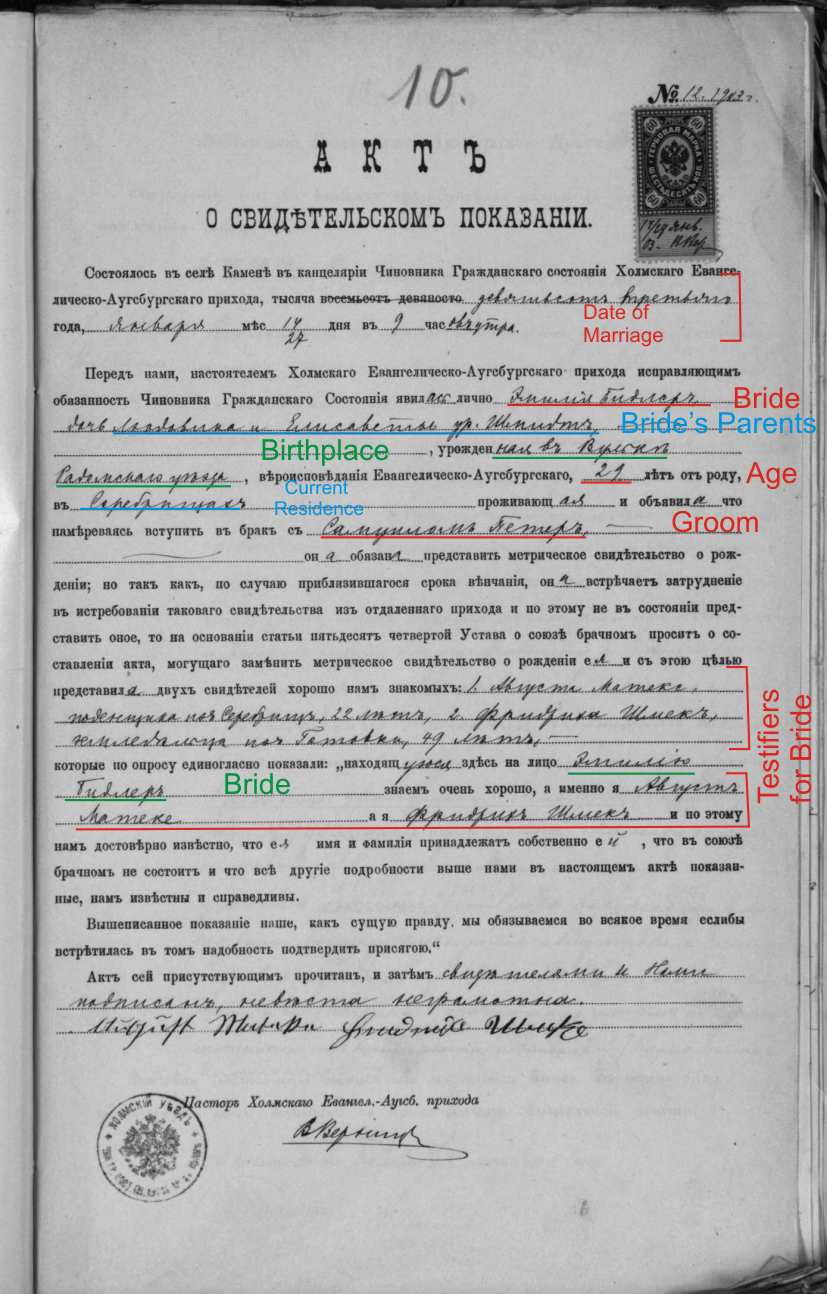 10.
№ 12. 1903 г.
60 60
ГЕРБОВАЯ МАРКА
ШЕСТЬДЕСЯТЪ КОП.
60 60
14/27 Янв.
03.
АКТЪ
О СВИДѢТЕЛЬСКОМЪ ПОКАЗАНІИ.
Состоялось въ селѣ Каменѣ въ канцеляріи Чиновника Гражданскаго состоянія Холмскаго Еванге-
лическо-Аугсбургскаго прихода, тысяча восемьсотъ девяносто девятьсотъ третьяго
года, Января мѣс 14/27 дня въ 9 час съ утра.
Date of
Marriage
Передъ нами, настоятелемъ Холмскаго Евангелическо-Аугсбургскаго прихода исправляющимъ
обязанность Чиновника Гражданскаго Состоянія явилась лично Эмилія Гидлеръ Bride
дочь Людовика и Елисаветы ур. Шмидтъ, Bride's Parents
Birthplace , урожденная въ
Радомскаго уѣзда, вѣроисповѣданія Евангелическо-Аугсбургскаго, 29 лѣтъ отъ роду, Age
въ Серебрищахъ Current Residence проживающая и объявила что
намѣреваясь вступить в бракъ съ Самуиломъ Петеръ, Groom
она обязана представить метрическое свидѣтельство о рож-
деніи; но такъ какъ, по случаю приблизившагося срока вѣнчанія, она встрѣчаетъ затрудненіе
въ истребованіи таковаго свидѣтельства изъ отдаленнаго прихода и по этому не въ состояніи пред-
ставить оное, то на основаніи статьи пятьдесятъ четвертой Устава о союзѣ брачномъ проситъ о со-
ставленіи акта, могущаго замѣнить метрическое свидѣтельство о рожденіи ея и съ этою цѣлью
представила двухъ свидѣтелей хорошо намъ знакомыхъ: 1. Августа Матеке,
поденщика изъ Серебрищъ, 22 лѣтъ, 2. Фридриха Шмекъ,
земледѣльца изъ Готовки, 49 лѣтъ,
Testifiers
for Bride
которые по опросу единогласно показали: „находящуюся здѣсь на лицо Эмилію
Гидлеръ Bride знаемъ очень хорошо, а именно я Августъ
Матеке а я Фридрихъ Шмекъ и по этому
намъ достовѣрно извѣстно, что ея имя и фамилія принадлежатъ собственно ей, что въ союзѣ
брачномъ не состоитъ и что всѣ другіе подробности выше нами въ настоящемъ актѣ показан-
ные, намъ извѣстны и справедливы.
Вышеписанное показаніе наше, какъ сущую правду, мы обязываемся во всякое время еслибы
встрѣтилась въ томъ надобность подтвердить присягою.“
Актъ сей присутствующимъ прочитанъ, и затѣмъ свидѣтелями и Нами
подписанъ, невѣста неграмотна.
Пасторъ Холмскаго Евангел.-Аугсб. прихода
ХОЛМСКІЙ УѢЗДЪ